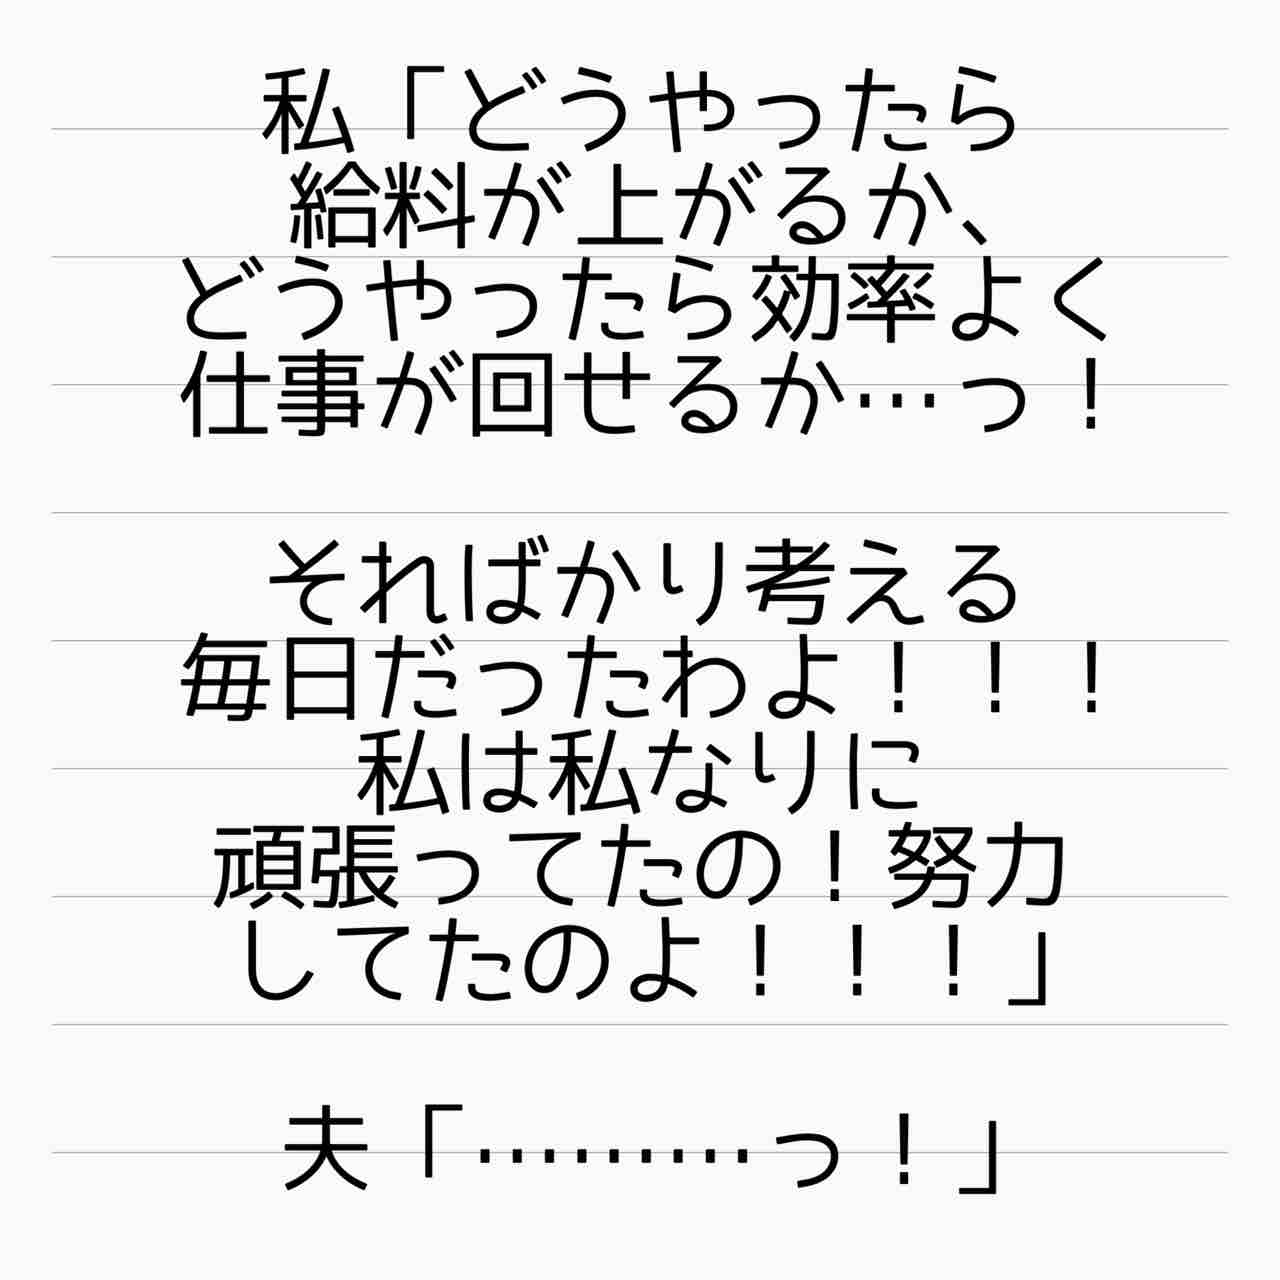 私「どうやったら
給料が上がるか、
どうやったら効率よく
仕事が回せるか…っ！
そればかり考える
毎日だったわよ！！！
私は私なりに
頑張ってたの！努力
してたのよ！！！」
夫「………っ！」